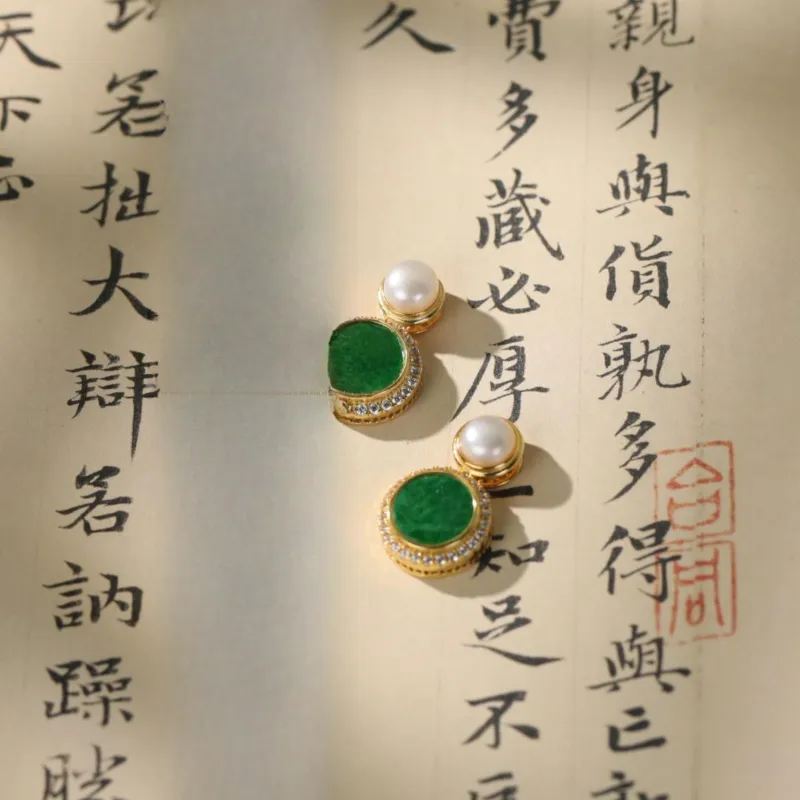 親身與貨孰多得與亡
費多藏必厚
知足不
久
若拙大辯若訥躁勝
天下正